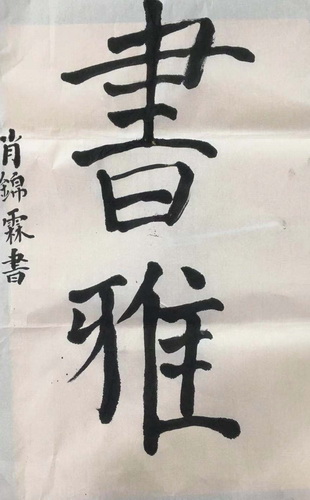 書雅
肖錦霖書